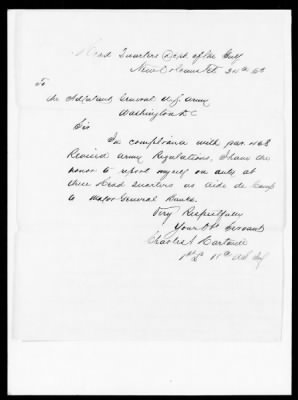 Head Quarters Dept. of the Gulf
New Orleans
To
the Adjutant General U.S. Army
Washington D.C
Sir
In compliance with par. 468
Revised Army Regulations, I have the
honor to report myself on duty at
these Head Quarters as Aide de Camp
to Major General Banks.
Very Respectfully
Your Obt Servant
Charles
1st Lt 11th